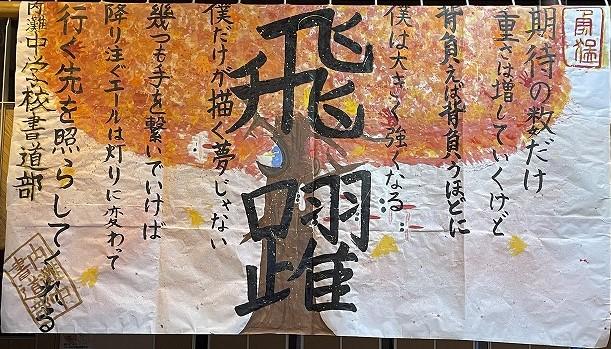 期待の数だけ
重さは増していくけど
背負えば背負うほどに
僕は大きく強くなる
飛躍
僕だけが描く夢じゃない
幾つも手を繋いでいけば
降り注ぐエールは灯りに変わって
行く先を照らしてくれる
内灘中学校書道部